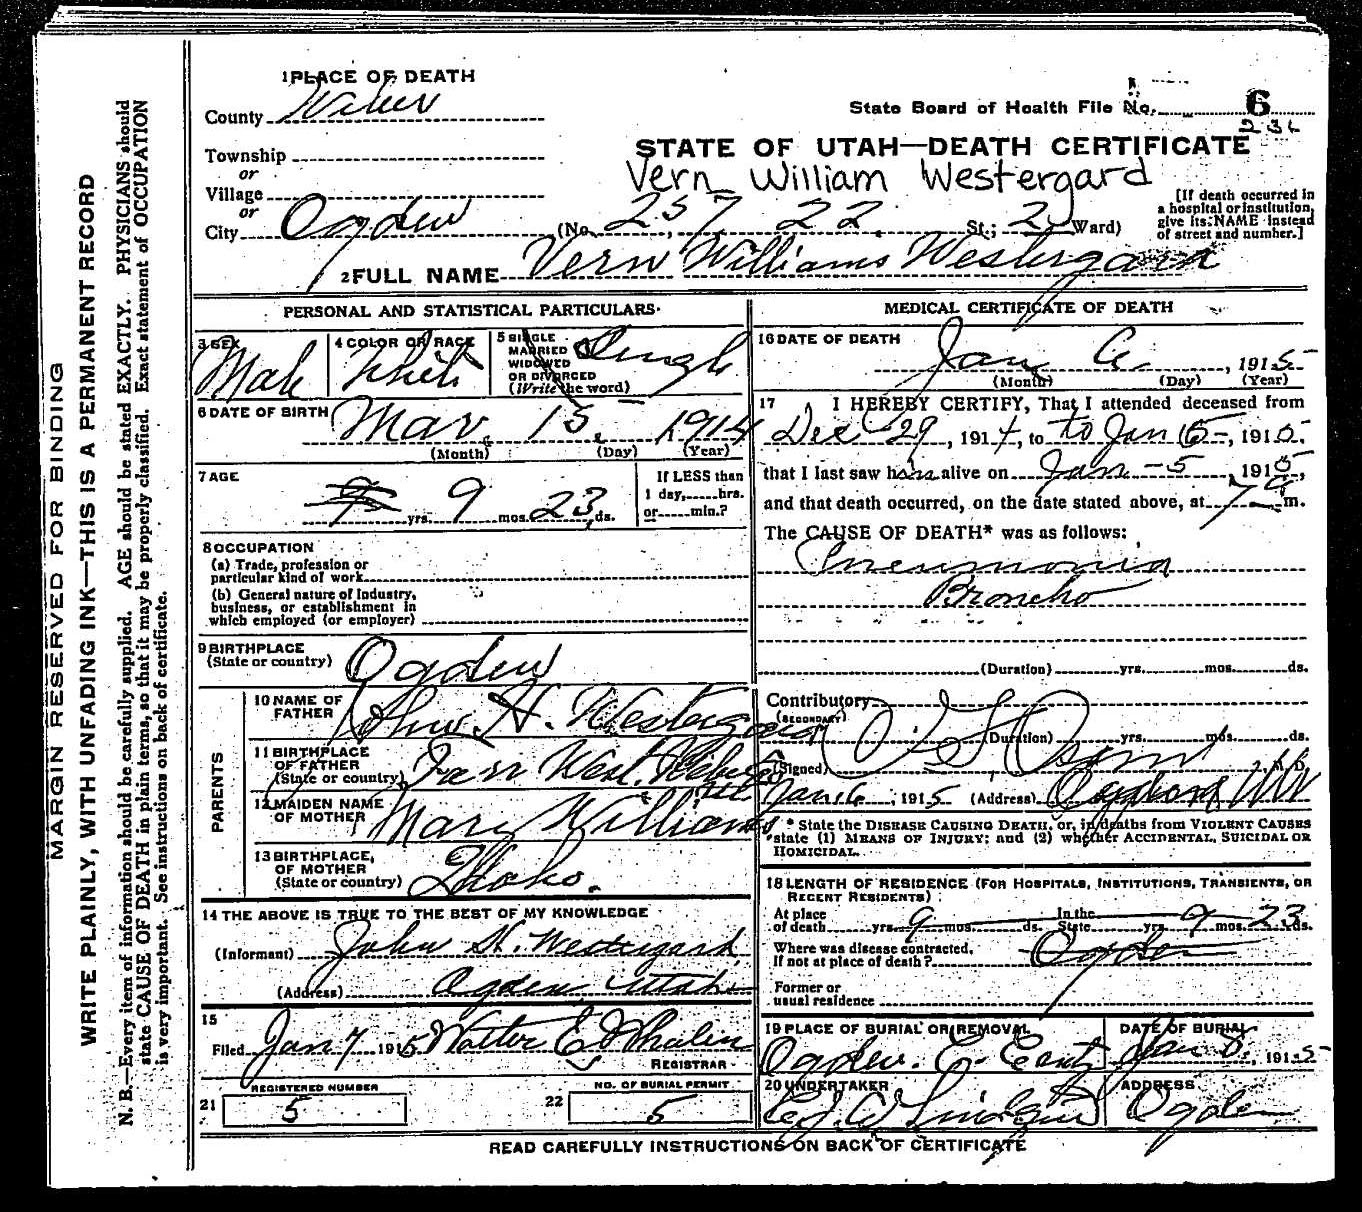 1 PLACE OF DEATH
County Weber
State Board of Health File No. 6
Township
or
Village
or
City Ogden (No. 257 22 St.; 2 Ward)
STATE OF UTAH—DEATH CERTIFICATE
Vern William Westergard
[If death occurred in
a hospital or institution,
give its NAME instead
of street and number.]
2 FULL NAME Vern Williams Westergard
PERSONAL AND STATISTICAL PARTICULARS
3 SEX Male
4 COLOR OR RACE White
5 SINGLE
MARRIED
WIDOWED
OR DIVORCED
(Write the word) Single
6 DATE OF BIRTH Mar. 15, 1914
(Month) (Day) (Year)
7 AGE yrs. 9 mos. 23 ds.
If LESS than
1 day, hrs.
or min.?
8 OCCUPATION
(a) Trade, profession or
particular kind of work
(b) General nature of Industry,
business, or establishment in
which employed (or employer)
9 BIRTHPLACE
(State or country) Ogden
PARENTS
10 NAME OF
FATHER John H. Westergard
11 BIRTHPLACE
OF FATHER
(State or country) Farr West. Weber
12 MAIDEN NAME
OF MOTHER Mary Williams
13 BIRTHPLACE,
OF MOTHER
(State or country) Idaho.
14 THE ABOVE IS TRUE TO THE BEST OF MY KNOWLEDGE
(Informant) John H. Westergard
(Address) Ogden, Utah
15
Filed Jan 7 1915 Walter E Whalen
REGISTRAR
REGISTERED NUMBER
21 5
NO. OF BURIAL PERMIT
22 5
MEDICAL CERTIFICATE OF DEATH
16 DATE OF DEATH
Jan 6, 1915
(Month) (Day) (Year)
17 I HEREBY CERTIFY, That I attended deceased from
Dec 29, 1914, to to Jan 5, 1915
that I last saw him alive on Jan - 5, 1915,
and that death occurred, on the date stated above, at 7 m.
The CAUSE OF DEATH* was as follows:
Pneumonia
Broncho
(Duration) yrs. mos. ds.
Contributory
(SECONDARY)
(Duration) yrs. mos. ds.
(Signed) M. D.
Jan. 6, 1915 (Address) Ogden
* State the DISEASE CAUSING DEATH, or, in deaths from VIOLENT CAUSES
state (1) MEANS OF INJURY; and (2) whether ACCIDENTAL, SUICIDAL OR
HOMICIDAL.
18 LENGTH OF RESIDENCE (FOR HOSPITALS, INSTITUTIONS, TRANSIENTS, OR
RECENT RESIDENTS)
At place
of death yrs. 9 mos. ds. In the
State yrs. 9 mos. 23 ds.
Where was disease contracted,
If not at place of death? Ogden
Former or
usual residence
19 PLACE OF BURIAL OR REMOVAL
Ogden. C. Cemt
DATE OF BURIAL
Jan 8, 1915
20 UNDERTAKER
Lindquist
ADDRESS
Ogden
READ CAREFULLY INSTRUCTIONS ON BACK OF CERTIFICATE
MARGIN RESERVED FOR BINDING
WRITE PLAINLY, WITH UNFADING INK—THIS IS A PERMANENT RECORD
N. B.—Every item of information should be carefully supplied. AGE should be stated EXACTLY. PHYSICIANS should
state CAUSE OF DEATH in plain terms, so that it may be properly classified. Exact statement of OCCUPATION
is very important. See instructions on back of certificate.